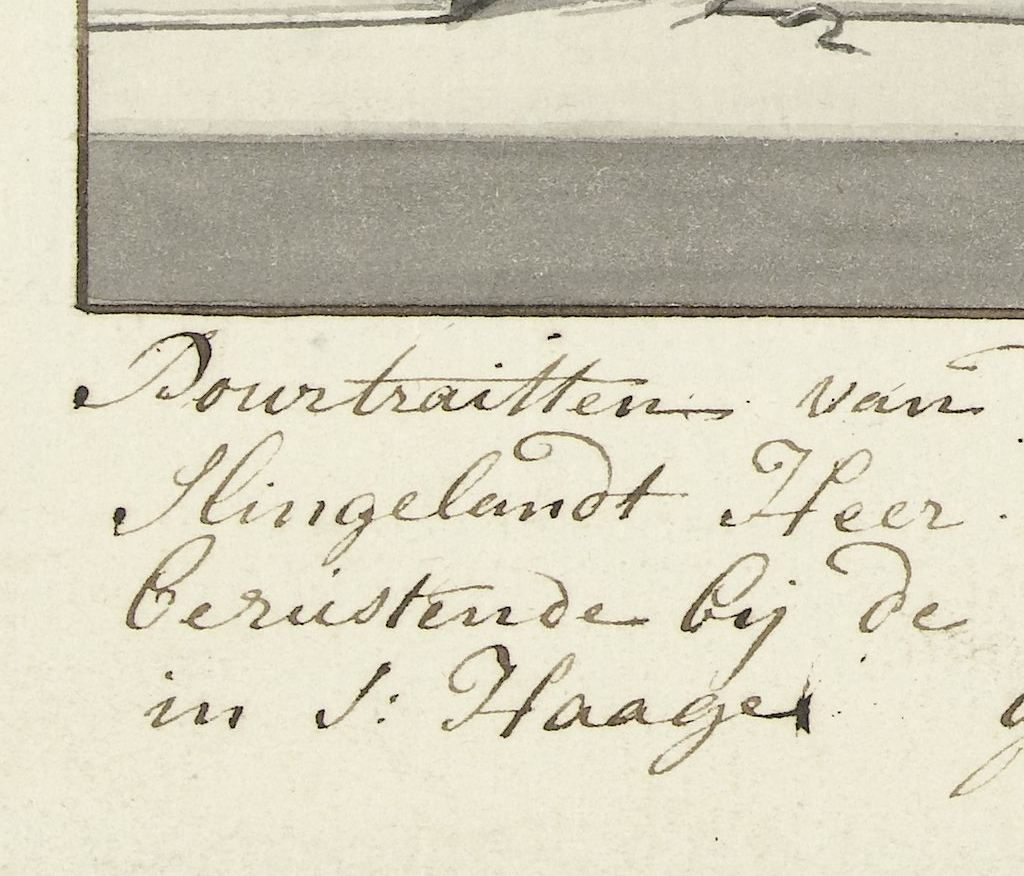 Pourtraitten van
Slingelandt Heer
berustende bij de
in S: Haage